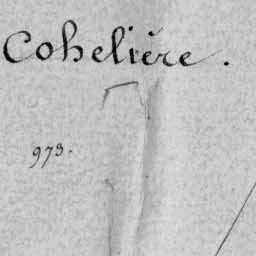 Cohelière.
973.